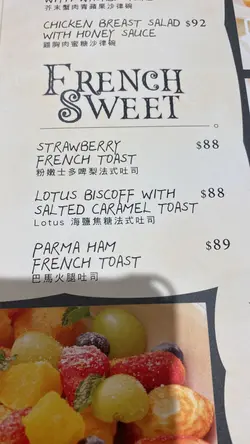 芥末蟹肉青蘋果沙律碗
CHICKEN BREAST SALAD $92
WITH HONEY SAUCE
雞胸肉蜜糖沙律碗
FRENCH
SWEET
STRAWBERRY $88
FRENCH TOAST
粉嫩士多啤梨法式吐司
LOTUS BISCOFF WITH $88
SALTED CARAMEL TOAST
Lotus 海鹽焦糖法式吐司
PARMA HAM $89
FRENCH TOAST
巴馬火腿吐司